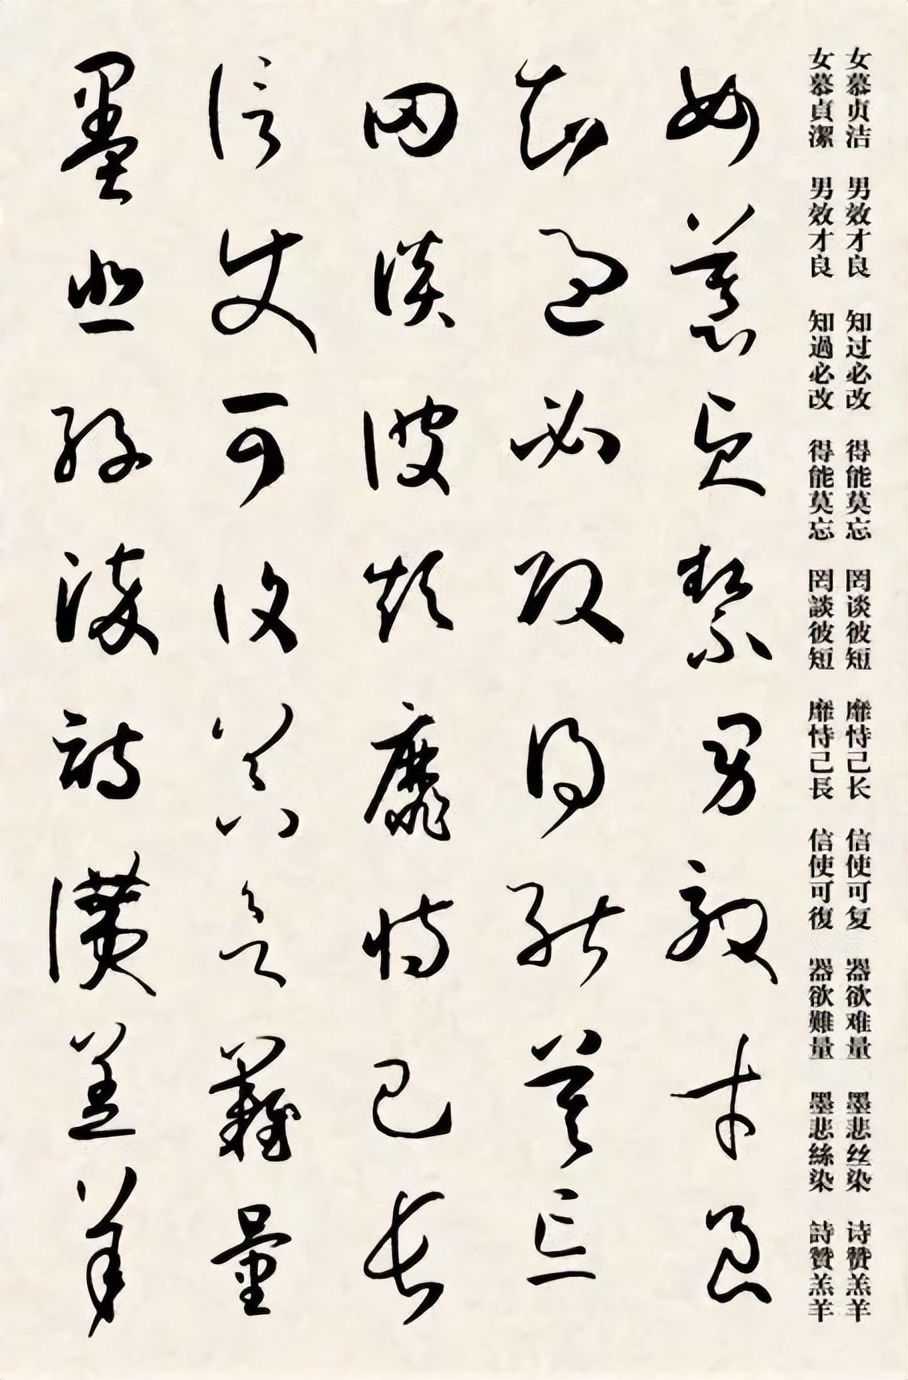 女慕贞洁 男效才良 知过必改 得能莫忘 罔谈彼短 靡恃己长 信使可复 器欲难量 墨悲丝染 诗赞羔羊
女慕貞潔 男效才良 知過必改 得能莫忘 罔談彼短 靡恃己長 信使可復 器欲難量 墨悲絲染 詩贊羔羊
女慕貞潔男效才良
知過必改得能莫忘
罔談彼短靡恃己長
信使可復器欲難量
墨悲絲染詩讚羔羊